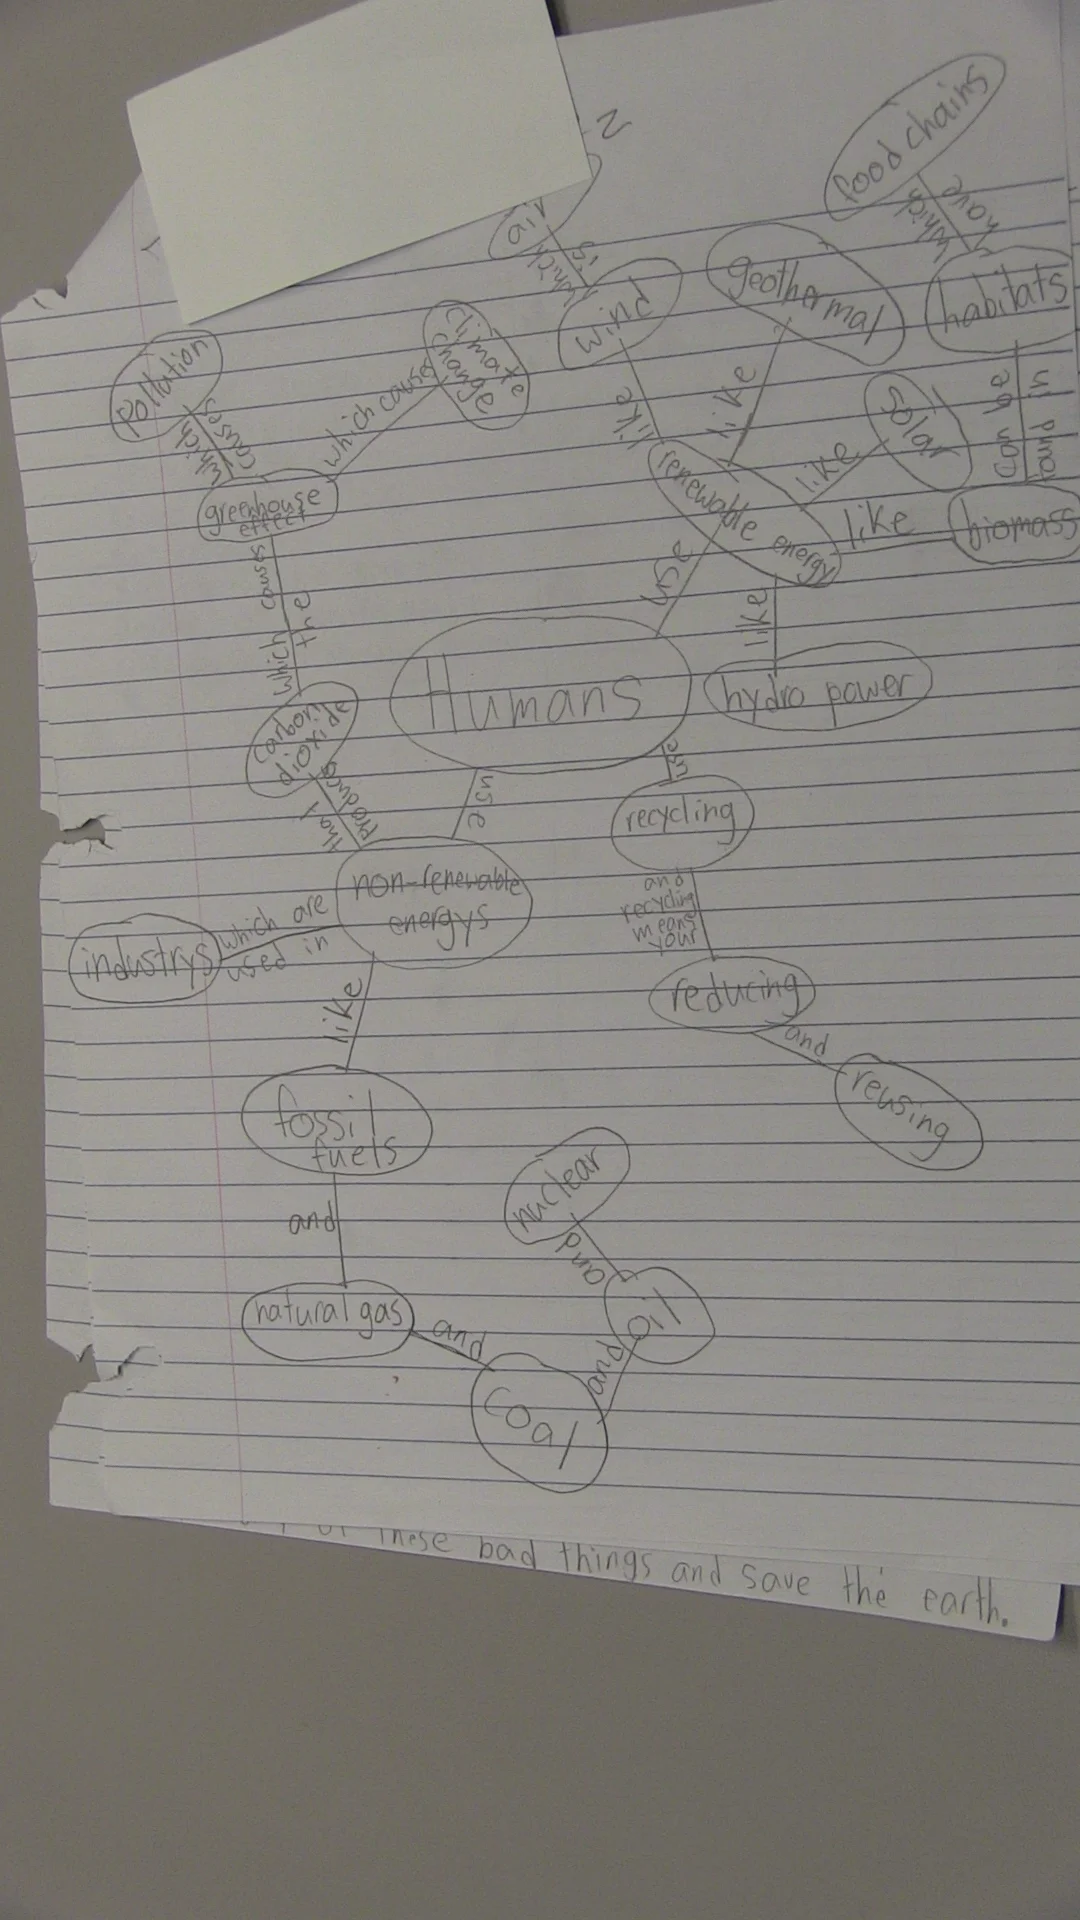 N
food chains
which
have
air
which
is
wind
geothermal
habitats
Pollution
climate
change
which
causes
which causes
like
like
solar
can be
found in
greenhouse
effect
renewable energy
like
like
biomass
which causes
the
use
like
Humans
hydro power
carbon
dioxide
that
produce
use
use
recycling
non-renewable
energys
and
recycling
means
your
industrys
which are
used in
reducing
like
and
reusing
fossil
fuels
nuclear
and
and
natural gas
and
oil
and
coal
these bad things and save the earth.